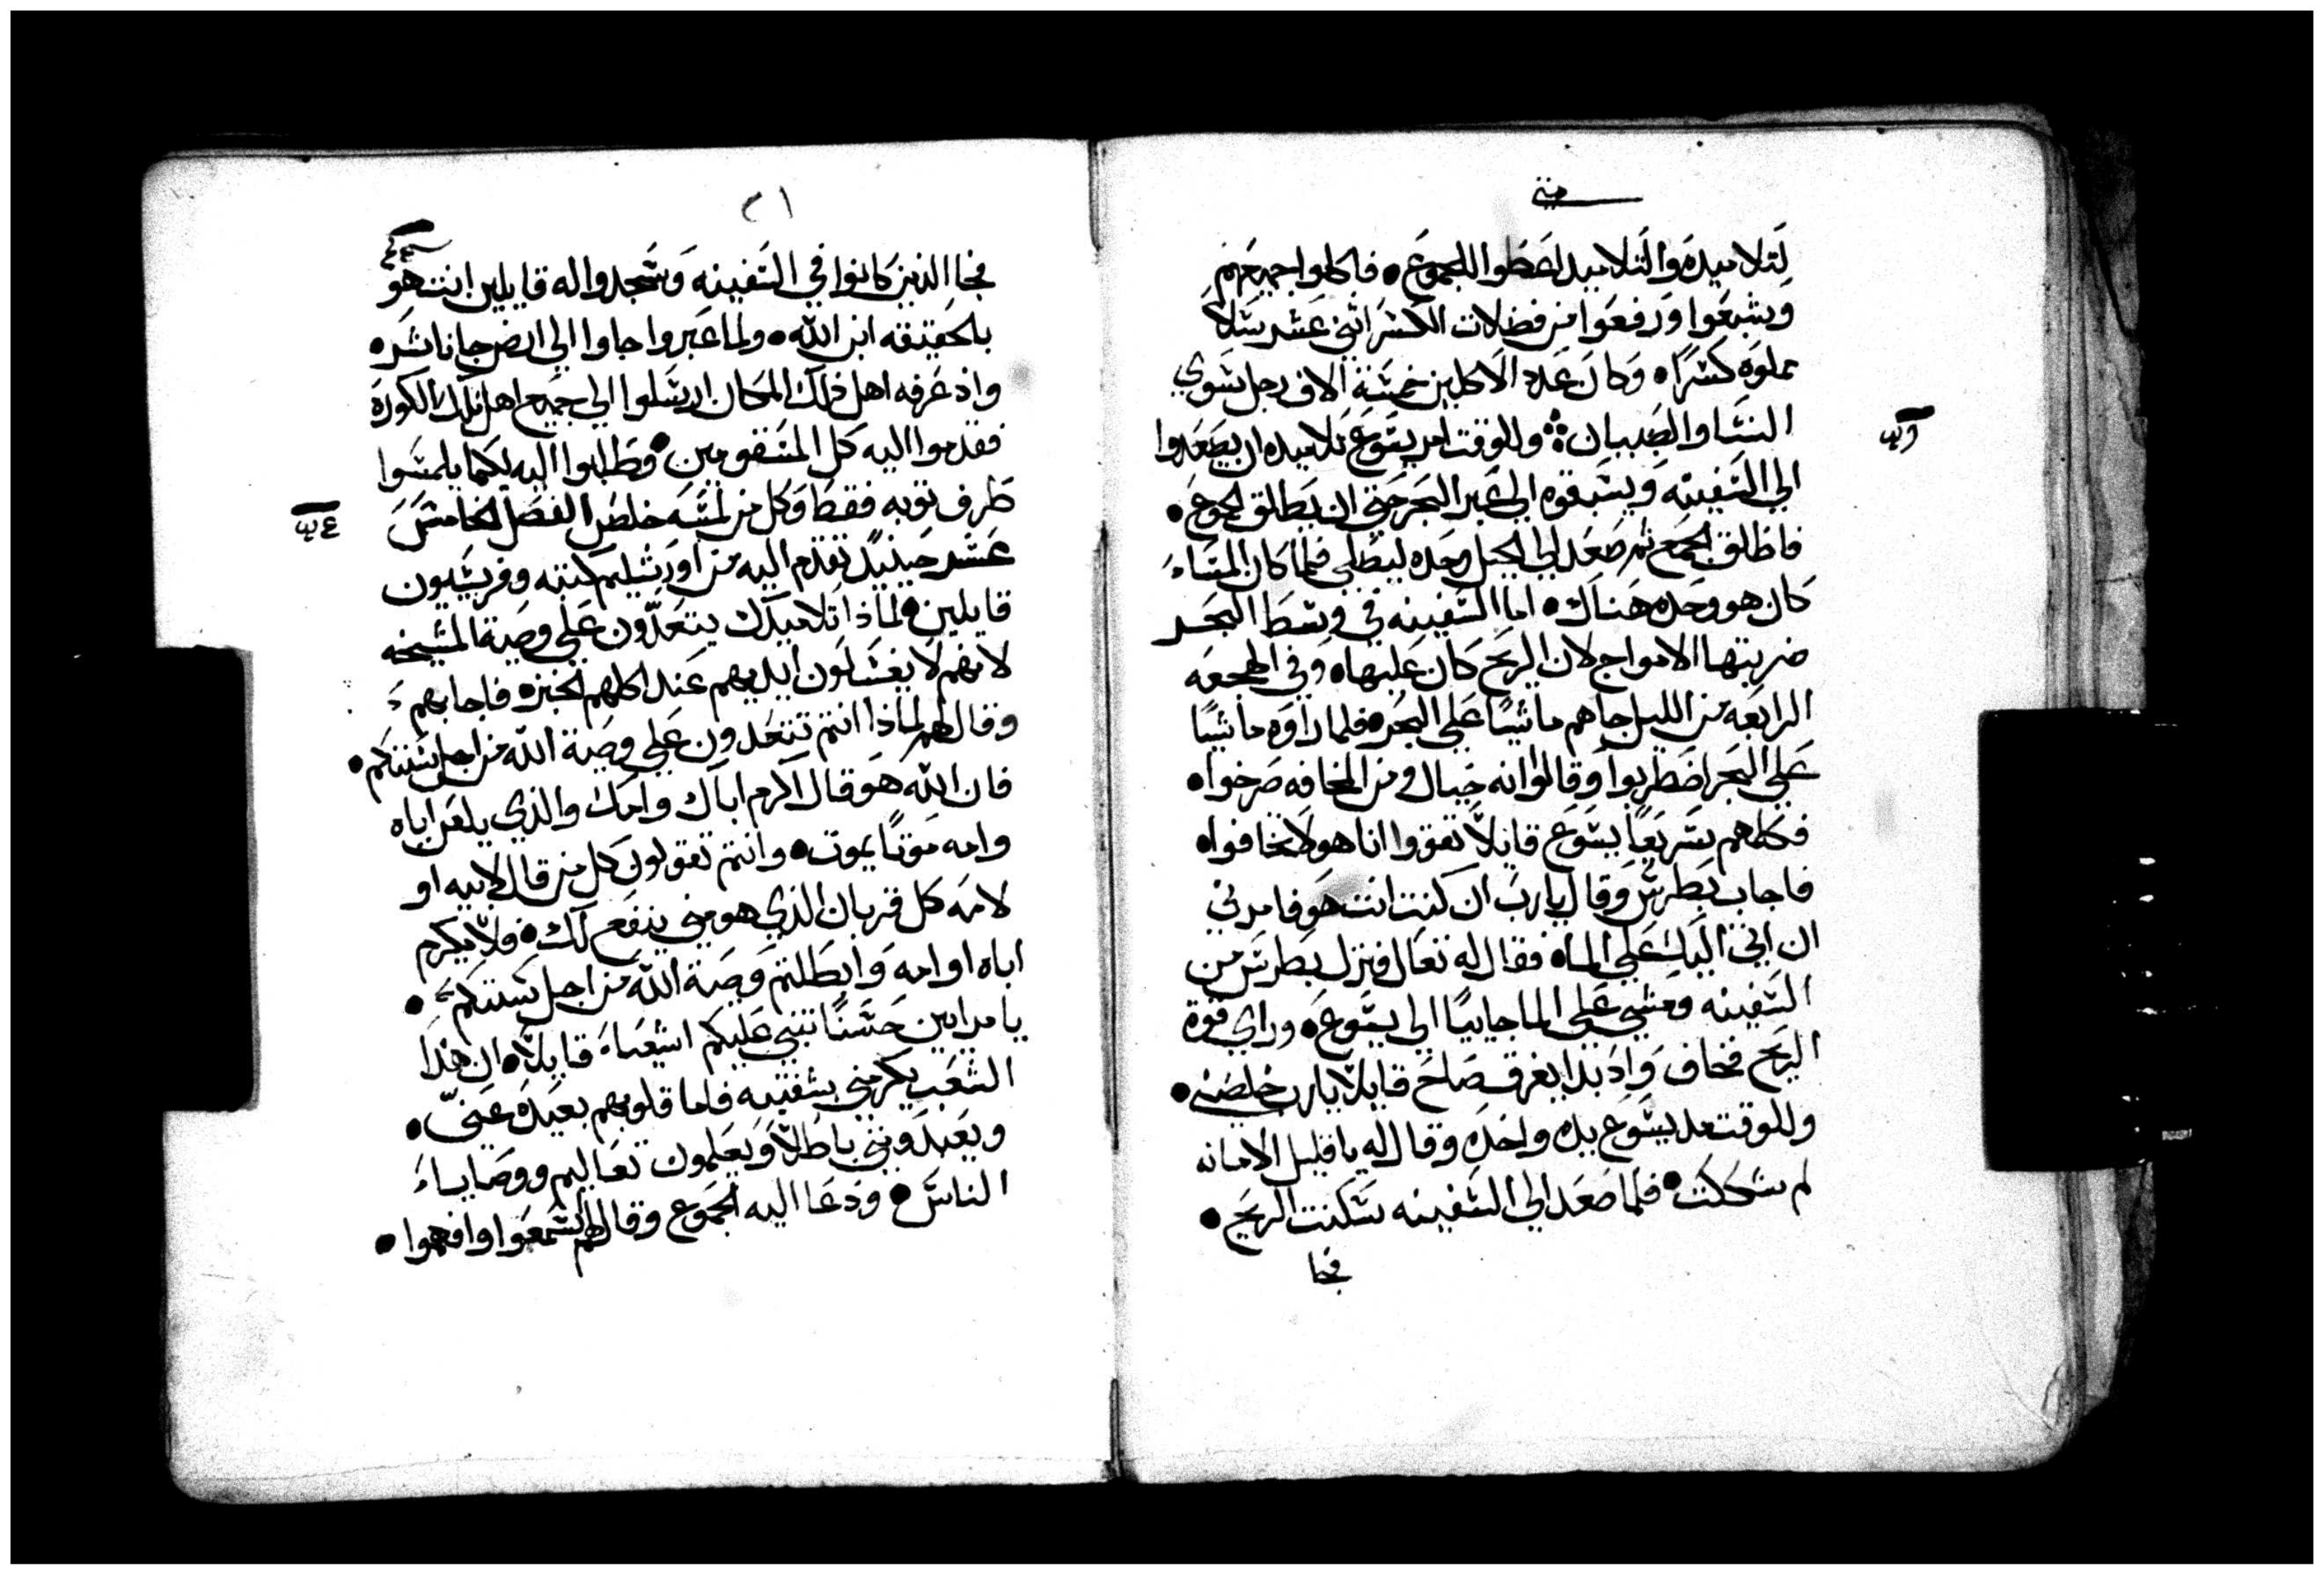 متى
لتلاميده والتلاميد اعطوا للجموع • فاكلوا جميعهم
وشبعوا ورفعوا من فضلات الكسر اثني عشر سلا
مملوه كسرا • وكان عدد الاكلين خمسة الاف رجل سوي
النسا والصبيان ܀ وللوقت امر يسوع تلاميده ان يصعدوا
الي السفينه ويسبقوه الي عبر البحر حتي ان يطلق الجموع •
فاطلق الجمع ثم صعد الي الجبل وحده ليصلي فلما كان المساء
كان هو وحده هناك • اما السفينه في وسط البحر
ضربتها الامواج لان الريح كان عليها • وفي الهجعه
الرابعه من الليل جاهم ماشيًا علي البحر • فلما راوه ماشيًا
علي البحر اضطربوا وقالوا انه خيال ومن المخافه صرخوا •
فكلمهم سريعًا يسوع قايلاً تقووا انا هو لا تخافوا •
فاجاب بطرس وقال يارب ان كنت انت هو فامرني
ان اتي اليك علي الماء فقال له تعال فنزل بطرس من
السفينه ومشي علي الما جاييًا الي يسوع • وراي قوة
الريح فخاف واد بدا يغرق صاح قايلاً يارب خلصني •
وللوقت مد يسوع يده واخده وقال له يا قليل الامانه
لم شككت • فلما صعد الي السفينه سكنت الريح •
فجا
٢١
فجا الذين كانوا في السفينه وسجدوا له قايلين انت هو
بالحقيقه ابن الله • ولما عبروا جاوا الي ارض جاناشر •
واذ عرفه اهل ذلك المكان ارسلوا الي جميع اهل تلك الكورة
فقدموا اليه كل المسقومين • وطلبوا اليه لكيما يلمسوا
طرف ثوبه فقط وكل من لمسه خلص الفصل الخامس
عشر حينيدٍ تقدم اليه من اورشليم كتبه وفريسيون
قايلين • لماذا تلاميدك يتعدّون علي وصية المشيخه
لانهم لا يغسلون ايديهم عند اكلهم الخبز • فاجابهم
وقال لهم لماذا انتم تتعدون علي وصية الله من اجل سنتكم •
فان الله هو قال اكرم اباك وامك والذي يلعن اباه
وامه موتًا يموت • وانتم تقولون كل من قال لابيه او
لامه كل قربان الذي هو مني ينفع لك • فلا يكرم
اباه او امه وابطلتم وصية الله من اجل سنتكم •
يا مرايين حسنًا تنبي عليكم اشعياء قايلاً • ان هذا
الشعب يكرمني بشفتيه فاما قلوبهم بعيده عنيّ •
ويعبدونني باطلاً ويعلمون تعاليم ووصاياء
الناس • ودعا اليه الجموع وقال لهم اسمعوا وافهموا •